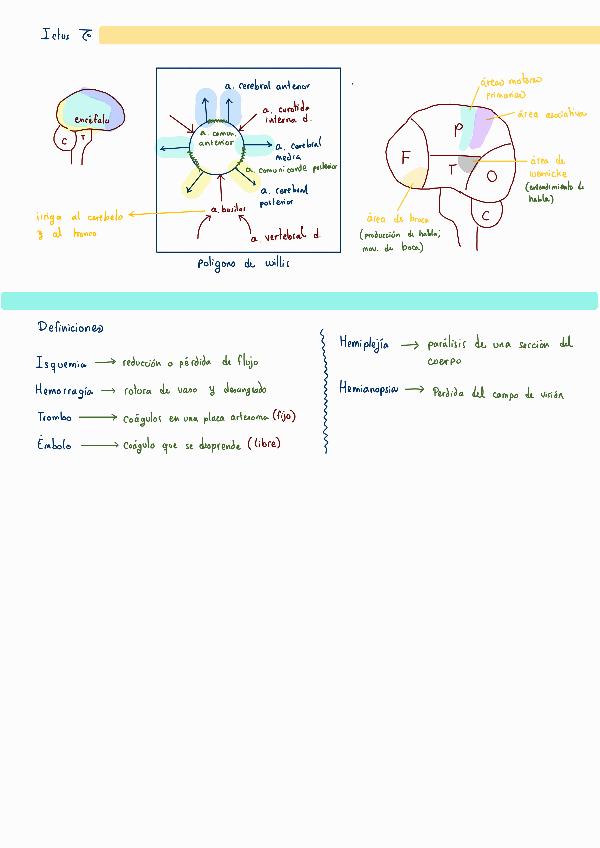 Ictus
encéfalo
C
T
a. cerebral anterior
a. carotida
interna d.
a. comun.
anterior
a. cerebral
media
a. comunicante posterior
a. cerebral
posterior
a. basilar
irriga al cerebelo
y al tronco
a. vertebral d.
poligono de willis
áreas motoras
primarias
área asociativa
P
F
T
O
C
área de
wernicke
(entendimiento de
habla)
área de broca
(producción de habla;
mov. de boca)
Definiciones
Isquemia → reducción o pérdida de flujo
Hemorragía → rotura de vaso y desangrado
Trombo → coágulos en una placa arteroma (fijo)
Émbolo → coágulo que se desprende (libre)
Hemiplejía → parálisis de una sección del
cuerpo
Hemianopsia → Perdida del campo de visión